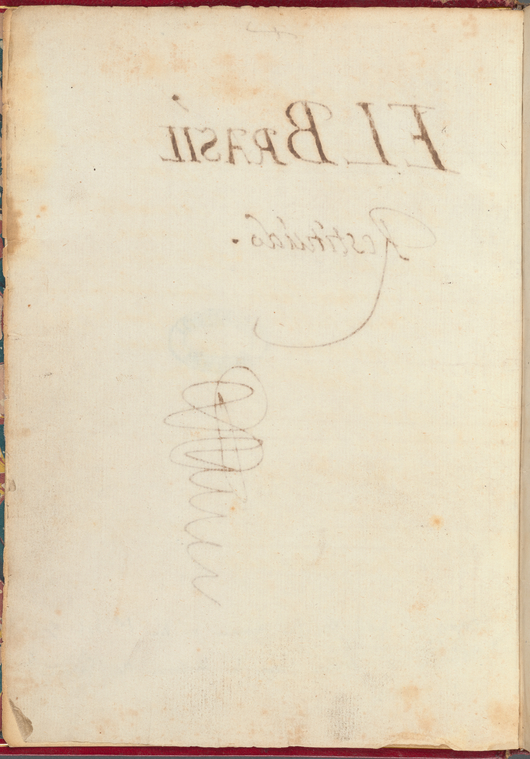 EL BRASIL
Restituido.